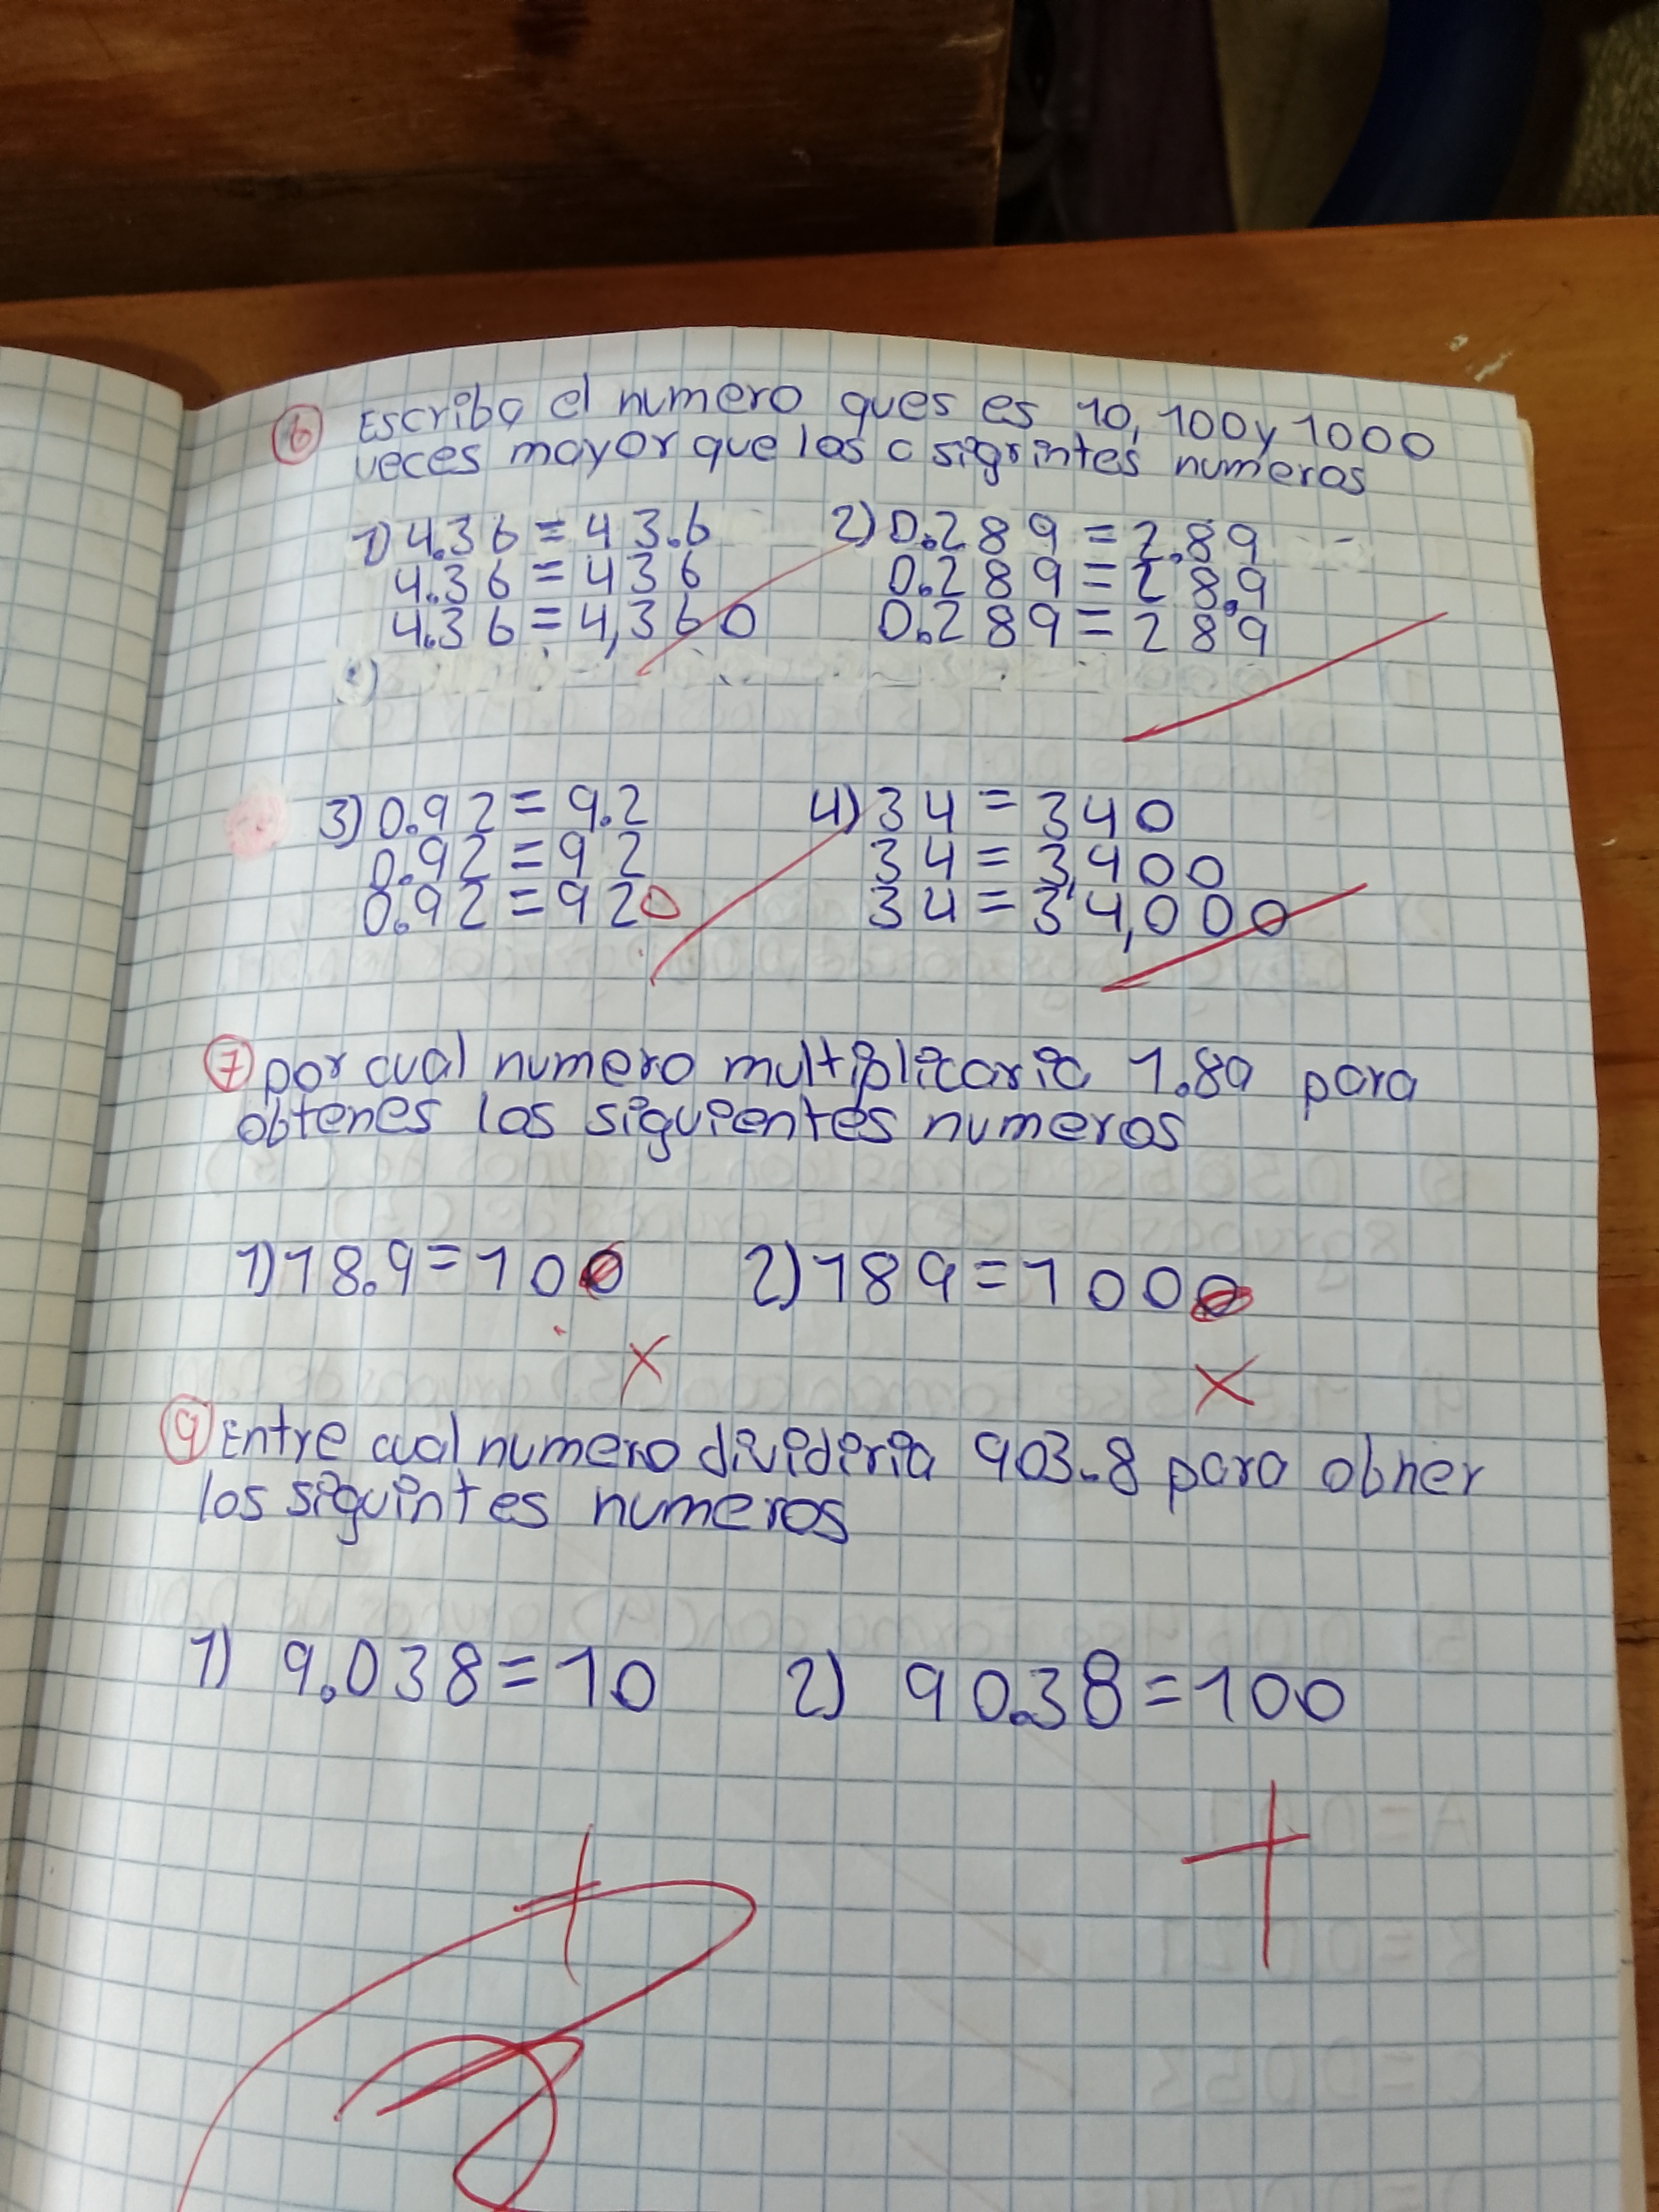 6 Escriba el numero ques es 10, 100 y 1000
veces mayor que los c sigrintes numeros
1) 4.36 = 43.6 2) 0.289 = 2.89
4.36 = 436 0.289 = 28.9
4.36 = 4,360 0.289 = 289
3) 0.92 = 9.2 4) 34 = 340
0.92 = 92 34 = 3,400
0.92 = 920 34 = 34,000
7 por cual numero multiplicaria 1.89 para
obtenes los siguientes numeros
1) 18.9 = 100 2) 189 = 1000
9 Entre cual numero divideria 903.8 para obner
los siguintes numeros
1) 9.038 = 10 2) 90.38 = 100